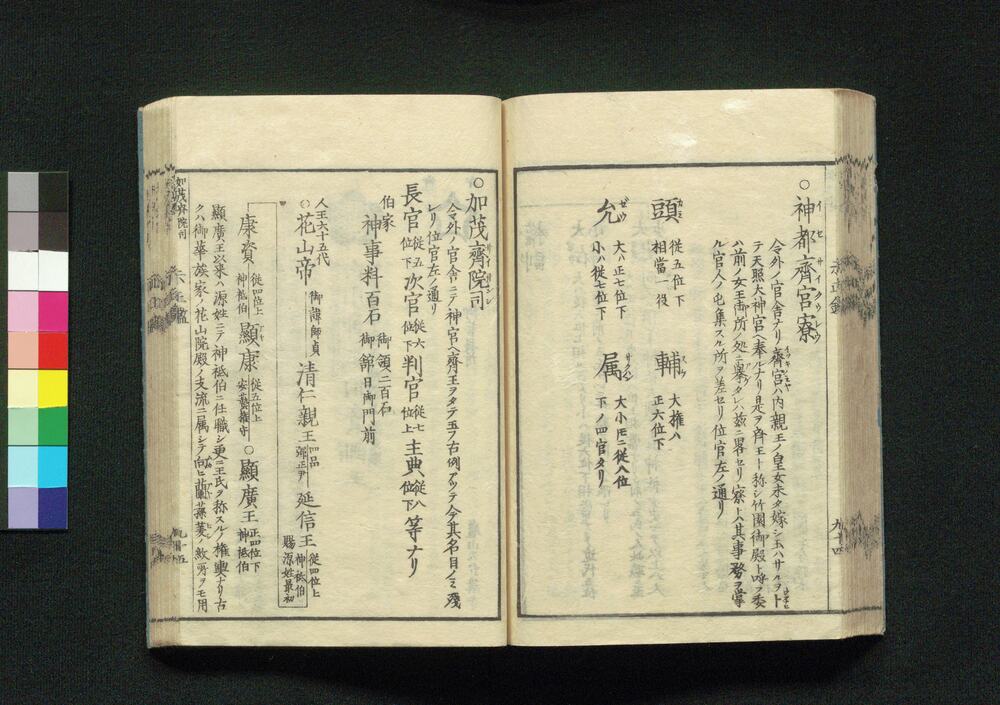 ○神都齊宮寮
今マ外ノ官舎ナリ齊宮ハ内親王ノ皇女未タ嫁シ玉ハサルヲト
テ天照大神宮ヘ奉ルナリ是ヲ齊王ト称シ竹園御殿ト呼ヲ委
ハ前ノ女王御所ノ処ニ挙タレハ茲ニ畧セリ寮トハ其事務ヲ掌
ル官人ノ屯集スル所ヲ差セリ位官左ノ通リ
頭 従五位下 相當一役
輔 大権ハ 正六位下
允 大ハ正七位下 小ハ従七位下
属 大小𪜈ニ従八位 下ノ四官タリ
九十四
○加茂齊院司
今マ外ノ官舎ニテ神官ヘ齊王ヲタテ玉フ右例アツテ今其名目ノミ残
レリ位官左ノ通リ
長官 従五位下 次官 従六位下 判官 従七位上 主典 従八位下 等ナリ
伯家
神事料百石 御領二百石 御舘日御門前
人王六十五代
○花山帝 御諱師貞 清仁親王 四品弾正尹 延信王 従四位上神祗伯賜源姓最初
康資 従四位上神祗伯 顯康 従五位上安藝権守 ○顯廣王 正四位下神祗伯
顯廣王以来ハ源姓ニテ神祗伯ニ任職シ更ニ王氏ヲ称スルノ権輿ナリ古
クハ御華族家ノ花山院殿ノ支流ニ属シテ向ヒ蘭蓀菱ノ紋所ヲモ用
加茂齊院司
九十五